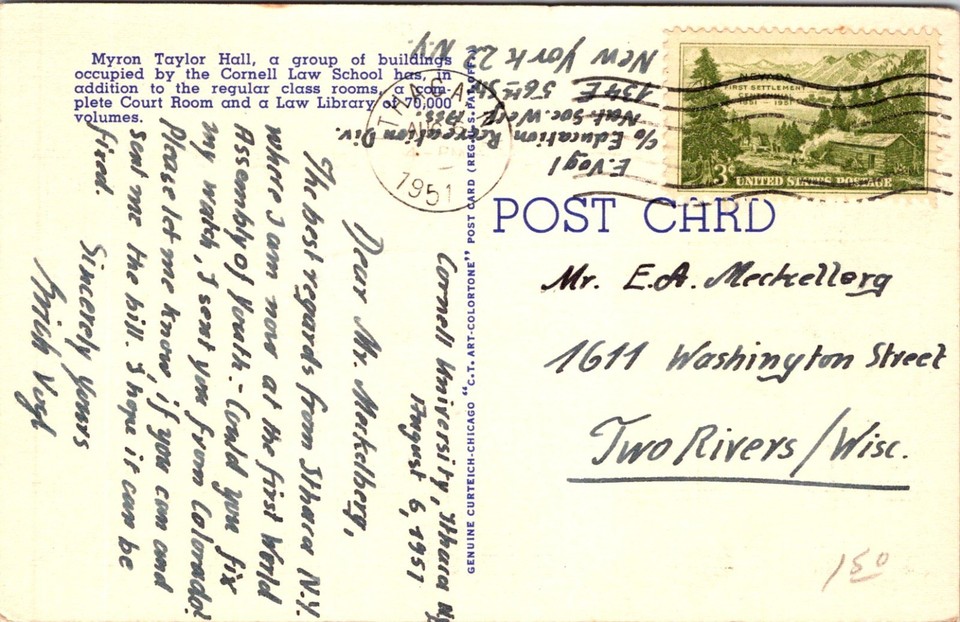 Myron Taylor Hall, a group of buildings
occupied by the Cornell Law School has, in
addition to the regular class rooms, a com-
plete Court Room and a Law Library of 70,000
volumes.
Cornell University, Ithaca NY
August 6, 1951
Dear Mr. Meckelberg,
The best regards from Ithaca N.Y.
where I am now at the first World
Assembly of Youth. - Could you fix
my watch, I sent you from Colorado?
Please let me know, if you can and
sent me the bill. I hope it can be
fixed.
Sincerely yours
Erich Vogl
E. Vogl
c/o Education Recreation Div.
Nat. Soc. Welf. Ass
134 E 56th St
New York 22 N.Y.
ITHACA
1951
GENUINE CURTEICH-CHICAGO "C.T. ART-COLORTONE" POST CARD (REG. U.S. PAT. OFF.)
NEVADA
FIRST SETTLEMENT
CENTENNIAL
1851 - 1951
3¢ UNITED STATES POSTAGE
POST CARD
Mr. E.A. Meckellorg
1611 Washington Street
Two Rivers/Wisc.
150